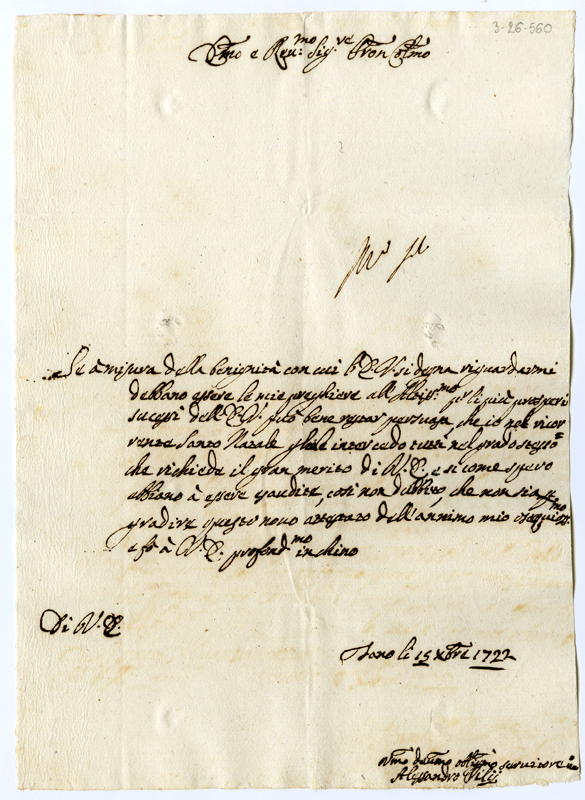 3-26-560
Emo e Reu:mo Sig:re Pron Colmo
Se à misura della benignità con cui l'E.V. si degna riguardarmi
debbano essere le mie preghiere all'Altis:mo p li più prosperi
sucessi dell'E.V. può bene restar persuasa, che io nel ricor
rente Santo Natale gliele intercedo tutti nel grado stesso
che richiede il gran merito di V.E. e si come spero
abbiano à essere esaudite, così non dubbito, che non sia p
gradire questo nouo attestato dell'animo mio ossequios:mo
e fò à V.E. profond:mo inchino
Di V.E.
Fano li 15 Xbre 1722
Vmo deumo obligmo seruitore
Alessandro